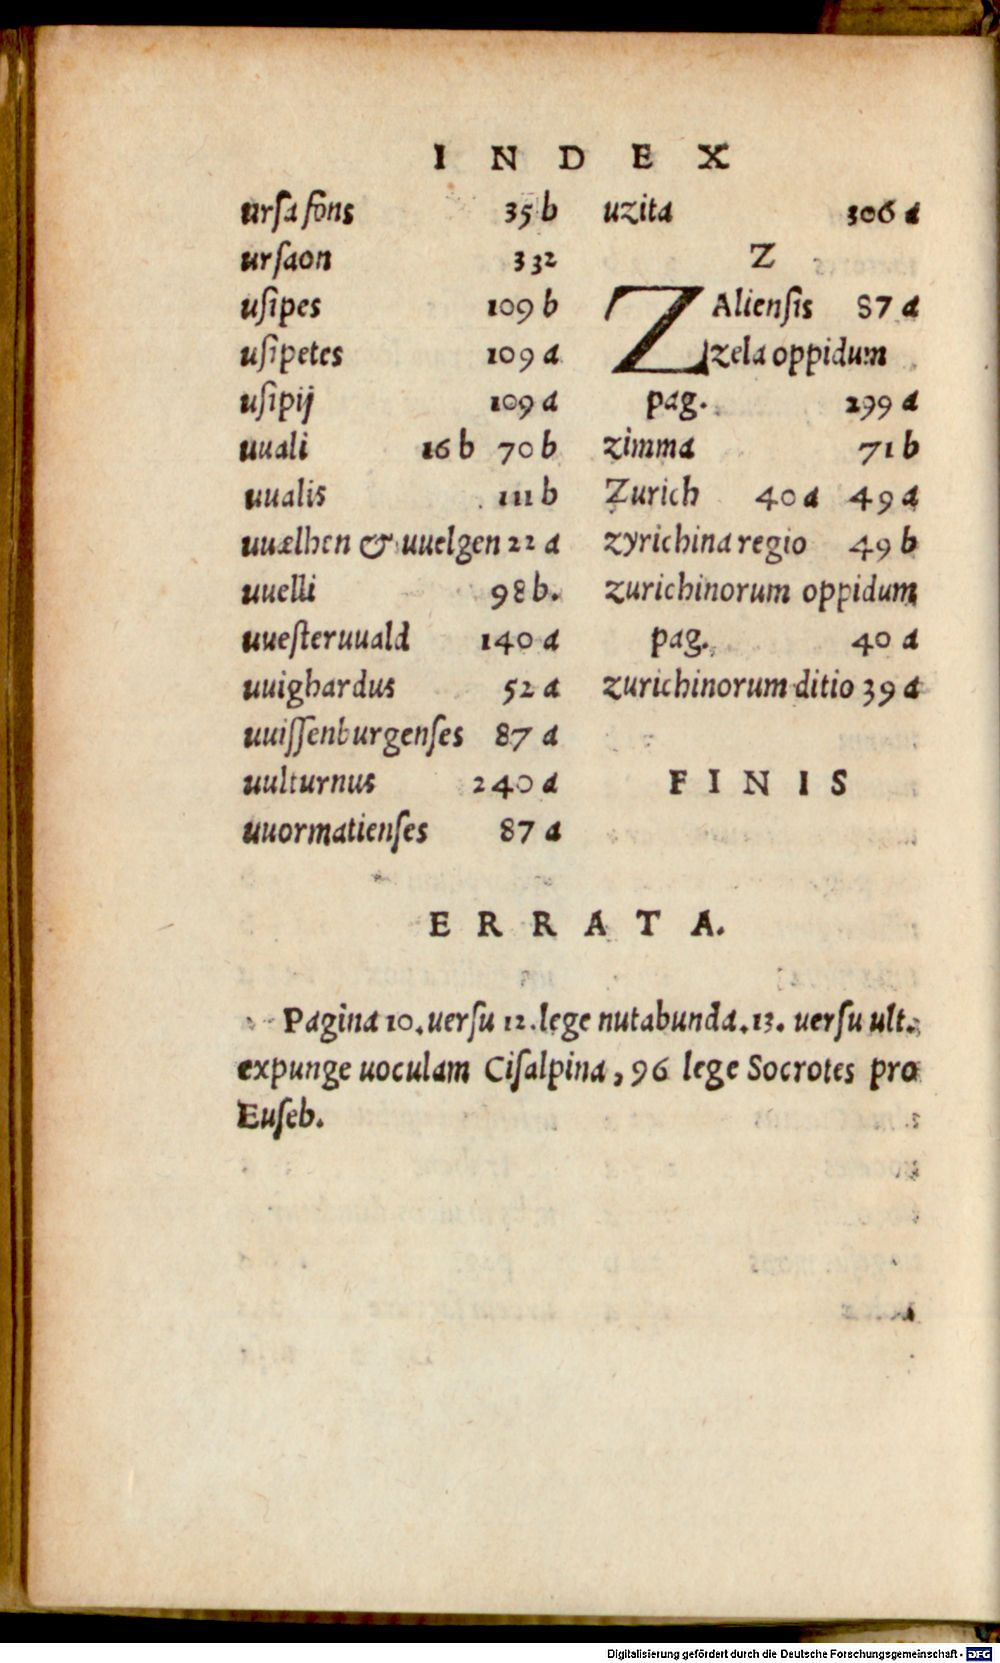 INDEX
urſa fons 35 b
urſaon 332
uſipes 109 b
uſipetes 109 a
uſipij 109 a
uuali 16 b 70 b
uualis 111 b
uuælhen & uuelgen 22 a
uuelli 98 b.
uueſteruuald 140 a
uuighardus 52 a
uuiſſenburgenſes 87 a
uulturnus 240 a
uuormatienſes 87 a
uzita 306 a
Z
ZAlienſis 87 a
zela oppidum
pag. 299 a
zimma 71 b
Zurich 40 a 49 a
zyrichina regio 49 b
zurichinorum oppidum
pag. 40 a
zurichinorum ditio 39 a
FINIS
ERRATA.
Pagina 10. uerſu 12. lege nutabunda. 13. uerſu ult.
expunge uoculam Ciſalpina, 96 lege Socrotes pro
Euſeb.
Digitalisierung gefördert durch die Deutsche Forschungsgemeinschaft - DFG